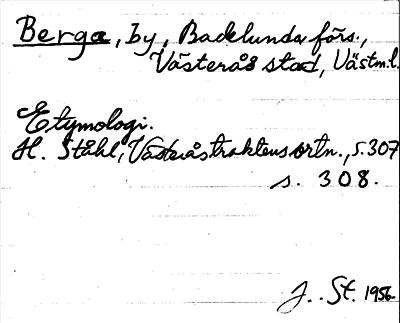 Berga, by, Badelunda förs.,
Västerås stad, Västm.l.
Etymologi.
H. Ståhl, Västeråstraktens ortn., s. 307
s. 308.
J. St. 1956.